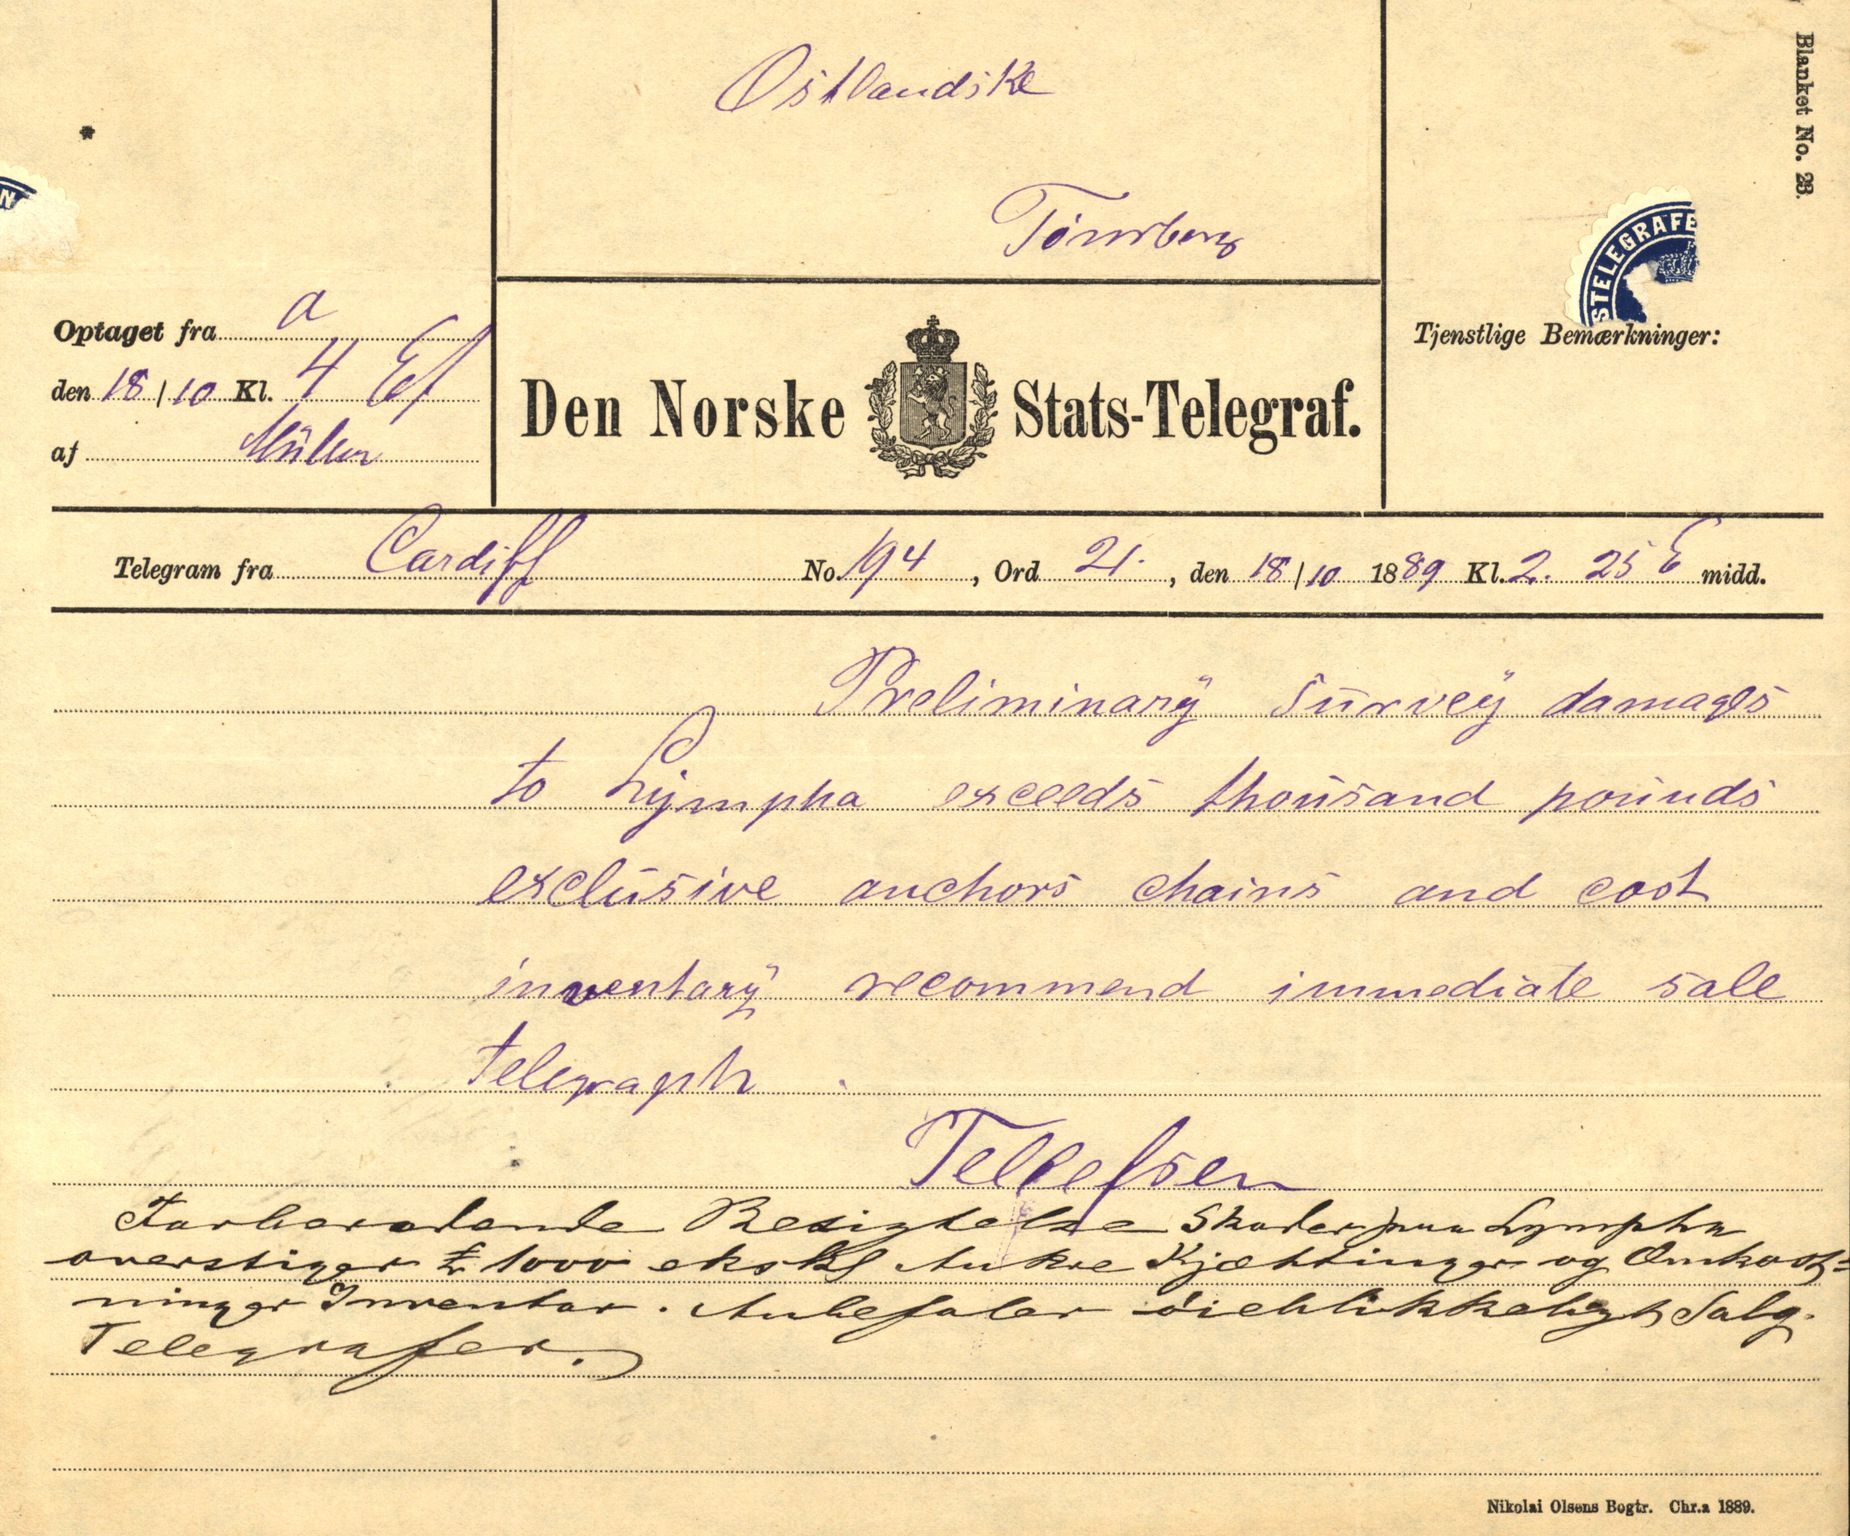 Blanket No. 28.
Østlandske
Tönsberg
STELEGRAFE
N
Optaget fra a
den 18/10 Kl. 4 Ef
af Müller
Den Norske Stats-Telegraf.
Tjenstlige Bemærkninger:
Telegram fra Cardiff No. 194, Ord 21, den 18/10 1889 Kl. 2. 25 E midd.
Preliminary survey damages
to Lympha exceeds thousand pounds
exclusive anchors chains and cost
inventary recommend immediate sale
telegraph.
Tellefsen
Forberedende Besigtelse Skader paa Lympha
overstiger £ 1000 ekskl Ankre Kjættinger og Omkost=
ninger Inventar. Anbefaler öieblikkeligt Salg.
Telegrafer.
Nikolai Olsens Bogtr. Chr.a 1889.